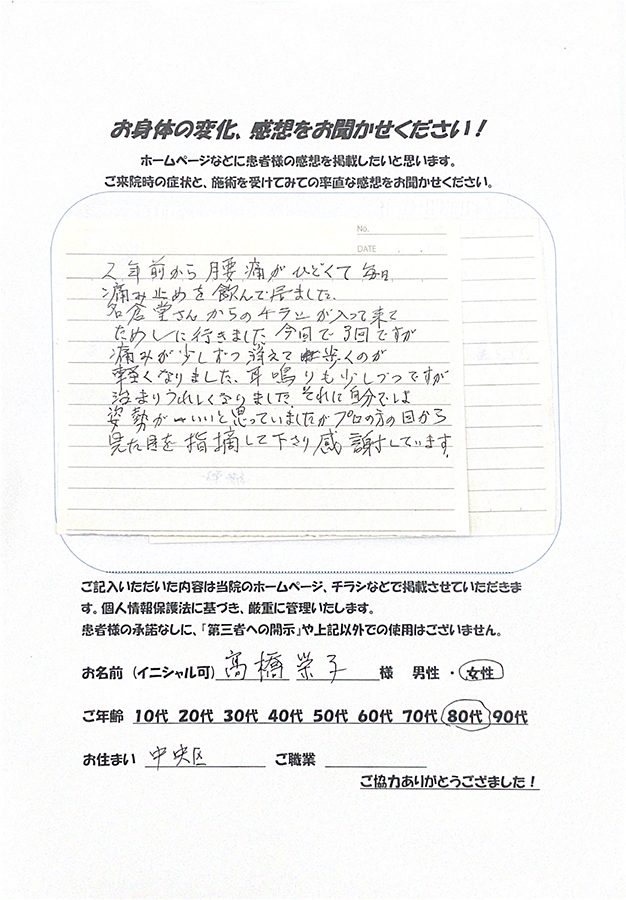 お身体の変化、感想をお聞かせください！
ホームページなどに患者様の感想を掲載したいと思います。
ご来院時の症状と、施術を受けてみての率直な感想をお聞かせください。
No.
DATE . .
2年前から腰痛がひどくて毎日
痛み止めを飲んで居ました、
名倉堂さんからのチラシが入って来て
ためしに行きました 今回で3回ですが
痛みが少しずつ消えて 歩くのが
軽くなりました、耳鳴りも少しづつですが
治まりうれしくなりました それに自分では
姿勢がいいと思っていましたがプロの方の目から
見た目を指摘して下さり感謝しています
ご記入いただいた内容は当院のホームページ、チラシなどで掲載させていただきま
す。個人情報保護法に基づき、厳重に管理いたします。
患者様の承諾なしに、「第三者への開示」や上記以外での使用はございません。
お名前（イニシャル可） 高橋栄子 様 男性 ・ 女性
ご年齢 10代 20代 30代 40代 50代 60代 70代 80代 90代
お住まい 中央区 ご職業
ご協力ありがとうござました！